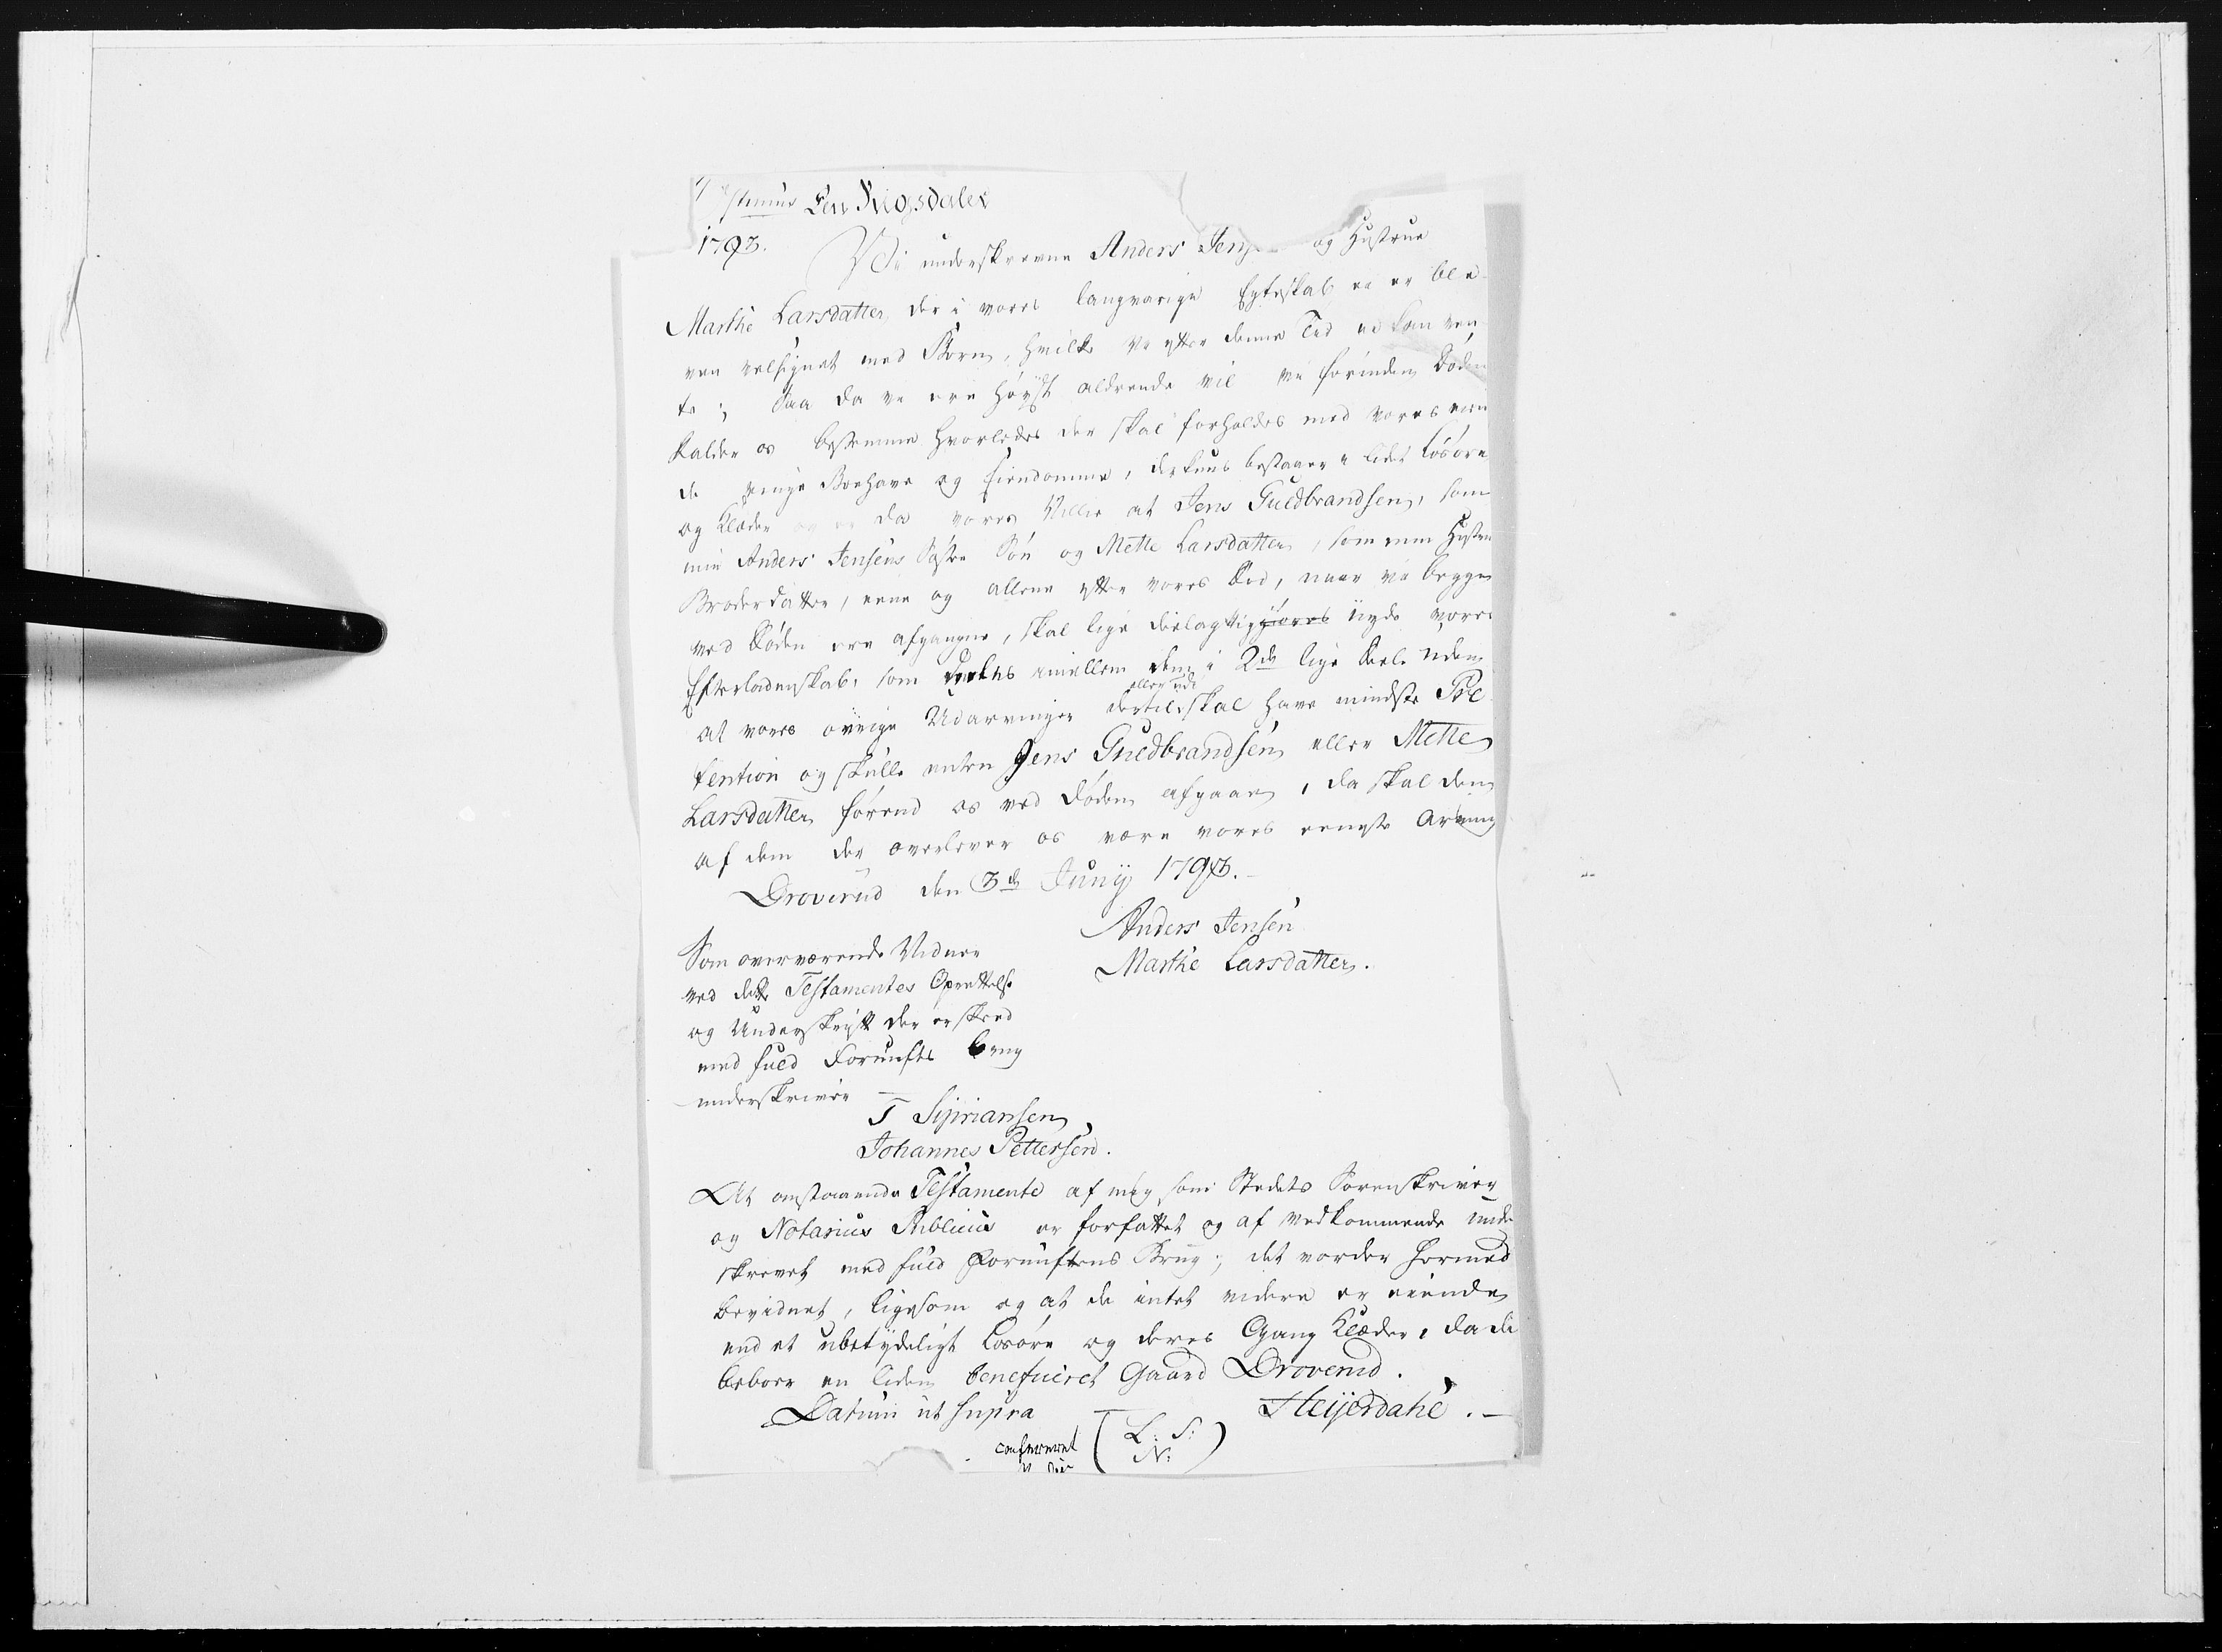 Een Rigsdaler
1793. Vi underskrevne Anders Jen og Hustrue
Marthe Larsdatter der i vores langvarige Egteskab ei er ble-
ven velsignet med Børn, hvilke vi efter denne Tid ei kan ven-
te; Saa da vi ere høyst aldrende vil vi forinden Døden
kalder os bestemme hvorledes der skal forholdes med vores eien-
de ringe Boehave og Eiendomme, der kuns bestaaer i lidet Løsøre
og Klæder og er da vores Villie at Jens Guldbrandsen, som
min Anders Jensens Søster Søn og Mette Larsdatter, som min Hustru
Broderdatter, eene og allene efter vores Død, naar vi begge
ved Døden ere afgangne, skal lige deelagtiggiøres nyde vores
Efterladenskab, som deeles imellem dem i 2de lige Deele uden
at vores øvrige Udarvinger dertil eller udi skal have mindste Præ
tention og skulle enten Jens Guldbrandsen eller Mette
Larsdatter førend os ved Døden afgaae, da skal den
af dem der overlever os være vores eeneste Arving
Droverud den 3de Junij 1793.
Anders Jensen
Marthe Larsdatter.
Som overværende Vidner
ved dette Testamentes Oprettelse
og Underskrift der er skeed
med fuld Fornufts Brug
underskriver
T Sipriansen
Johannes Pettersen.
At anstaaende Testamente af mig som Stedets Sorenskriver
og Notarius Publicus er forfattet og af Vedkommende under
skrevet med fuld Fornuftens Brug; det vorder hermed
bevidnet, ligesom og at de intet videre er eiende
end et ubetydeligt Løsøre og deres Gang Klæder, da de
beboer en liden beneficeret Gaard Droverud.
Datum ut supra Heijerdahl.
confereret (L: S:
N:)